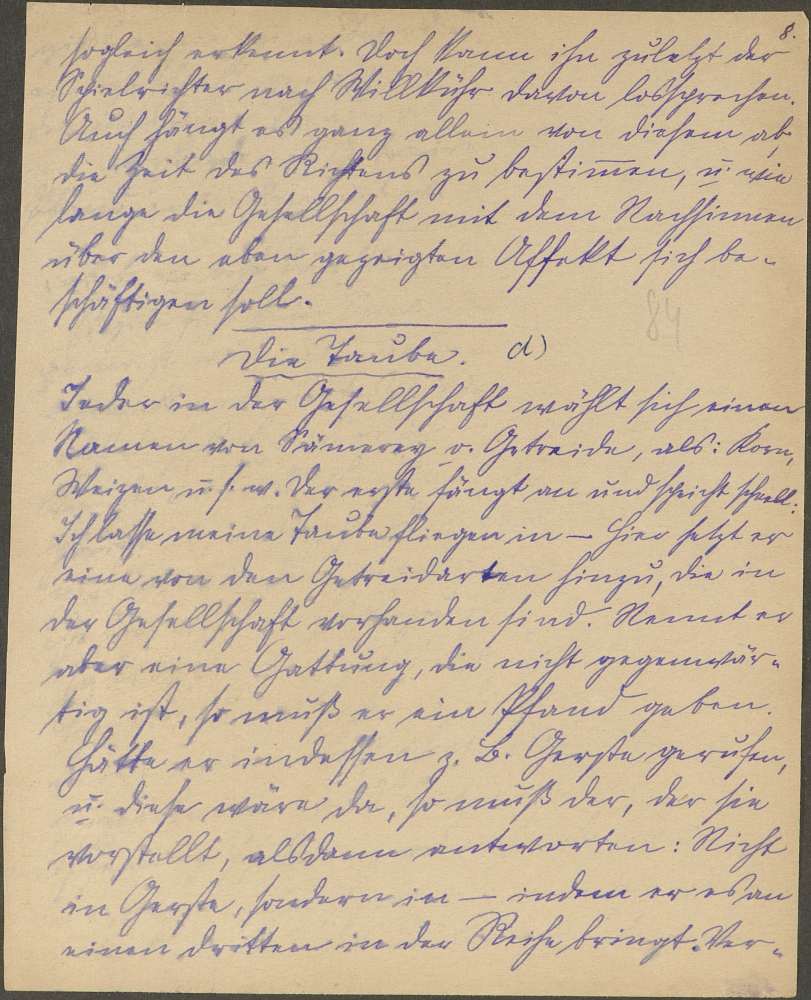 8.
sogleich erkennt. Doch kann ihn zuletzt der
Spielrichter nach Willkühr davon lossprechen.
Auch hängt es ganz allein von diesem ab,
die Zeit des Richtens zu bestim̅en, u. wie
lange die Gesellschaft mit dem Nachsinnen
über den eben gezeigten Affekt sich be-
schäftigen soll.
84
Die Taube. d)
Jeder in der Gesellschaft wählt sich einen
Namen von Sämerey o. Getreide, als: Korn,
Weizen u. s. w. Der erste fängt an und spricht schnell:
Ich lasse meine Taube fliegen in — hier setzt er
eine von den Getreidarten hinzu, die in
der Gesellschaft vorhanden sind. Nennt er
aber eine Gattung, die nicht gegenwär-
tig ist, so muß er ein Pfand geben.
Hätte er indessen z. B. Gerste gerufen,
u. diese wäre da, so muß der, der sie
vorstellt, alsdann antworten: Nicht
in Gerste, sondern in — indem er es an
einen dritten in der Reihe bringt. Ver-